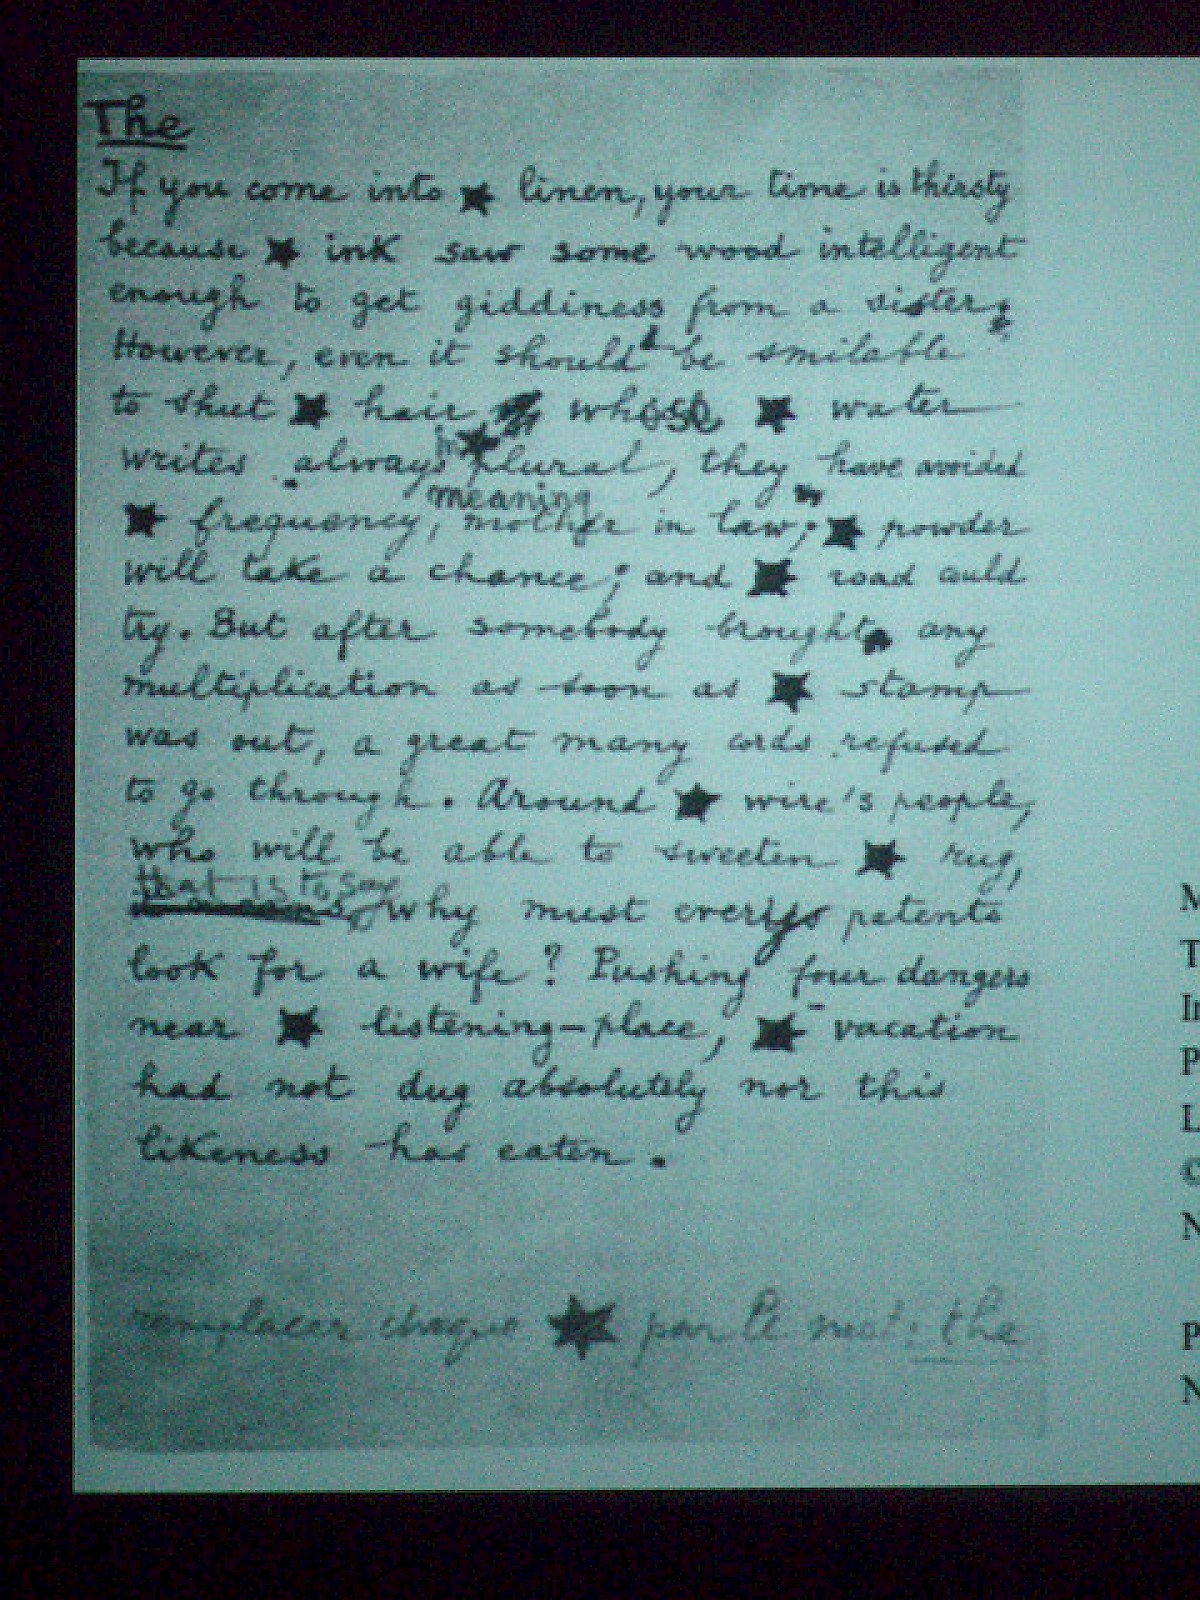 The
If you come into ★ linen, your time is thirsty
because ★ ink saw some wood intelligent
enough to get giddiness from a sister.
However, even it should be smilable
to shut ★ hair whose ★ water
writes always in ★ plural, they have avoided
★ frequency, meaning mother in law; ★ powder
will take a chance; and ★ road could
try. But after somebody brought any
multiplication as soon as ★ stamp
was out, a great many cords refused
to go through. Around ★ wire's people,
who will be able to sweeten ★ rug,
that is to say, why must every patents
look for a wife? Pushing four dangers
near ★ listening-place, ★ vacation
had not dug absolutely nor this
likeness has eaten.
remplacer chaque ★ par le mot: the
M
T
In
P
L
C
N
P
N